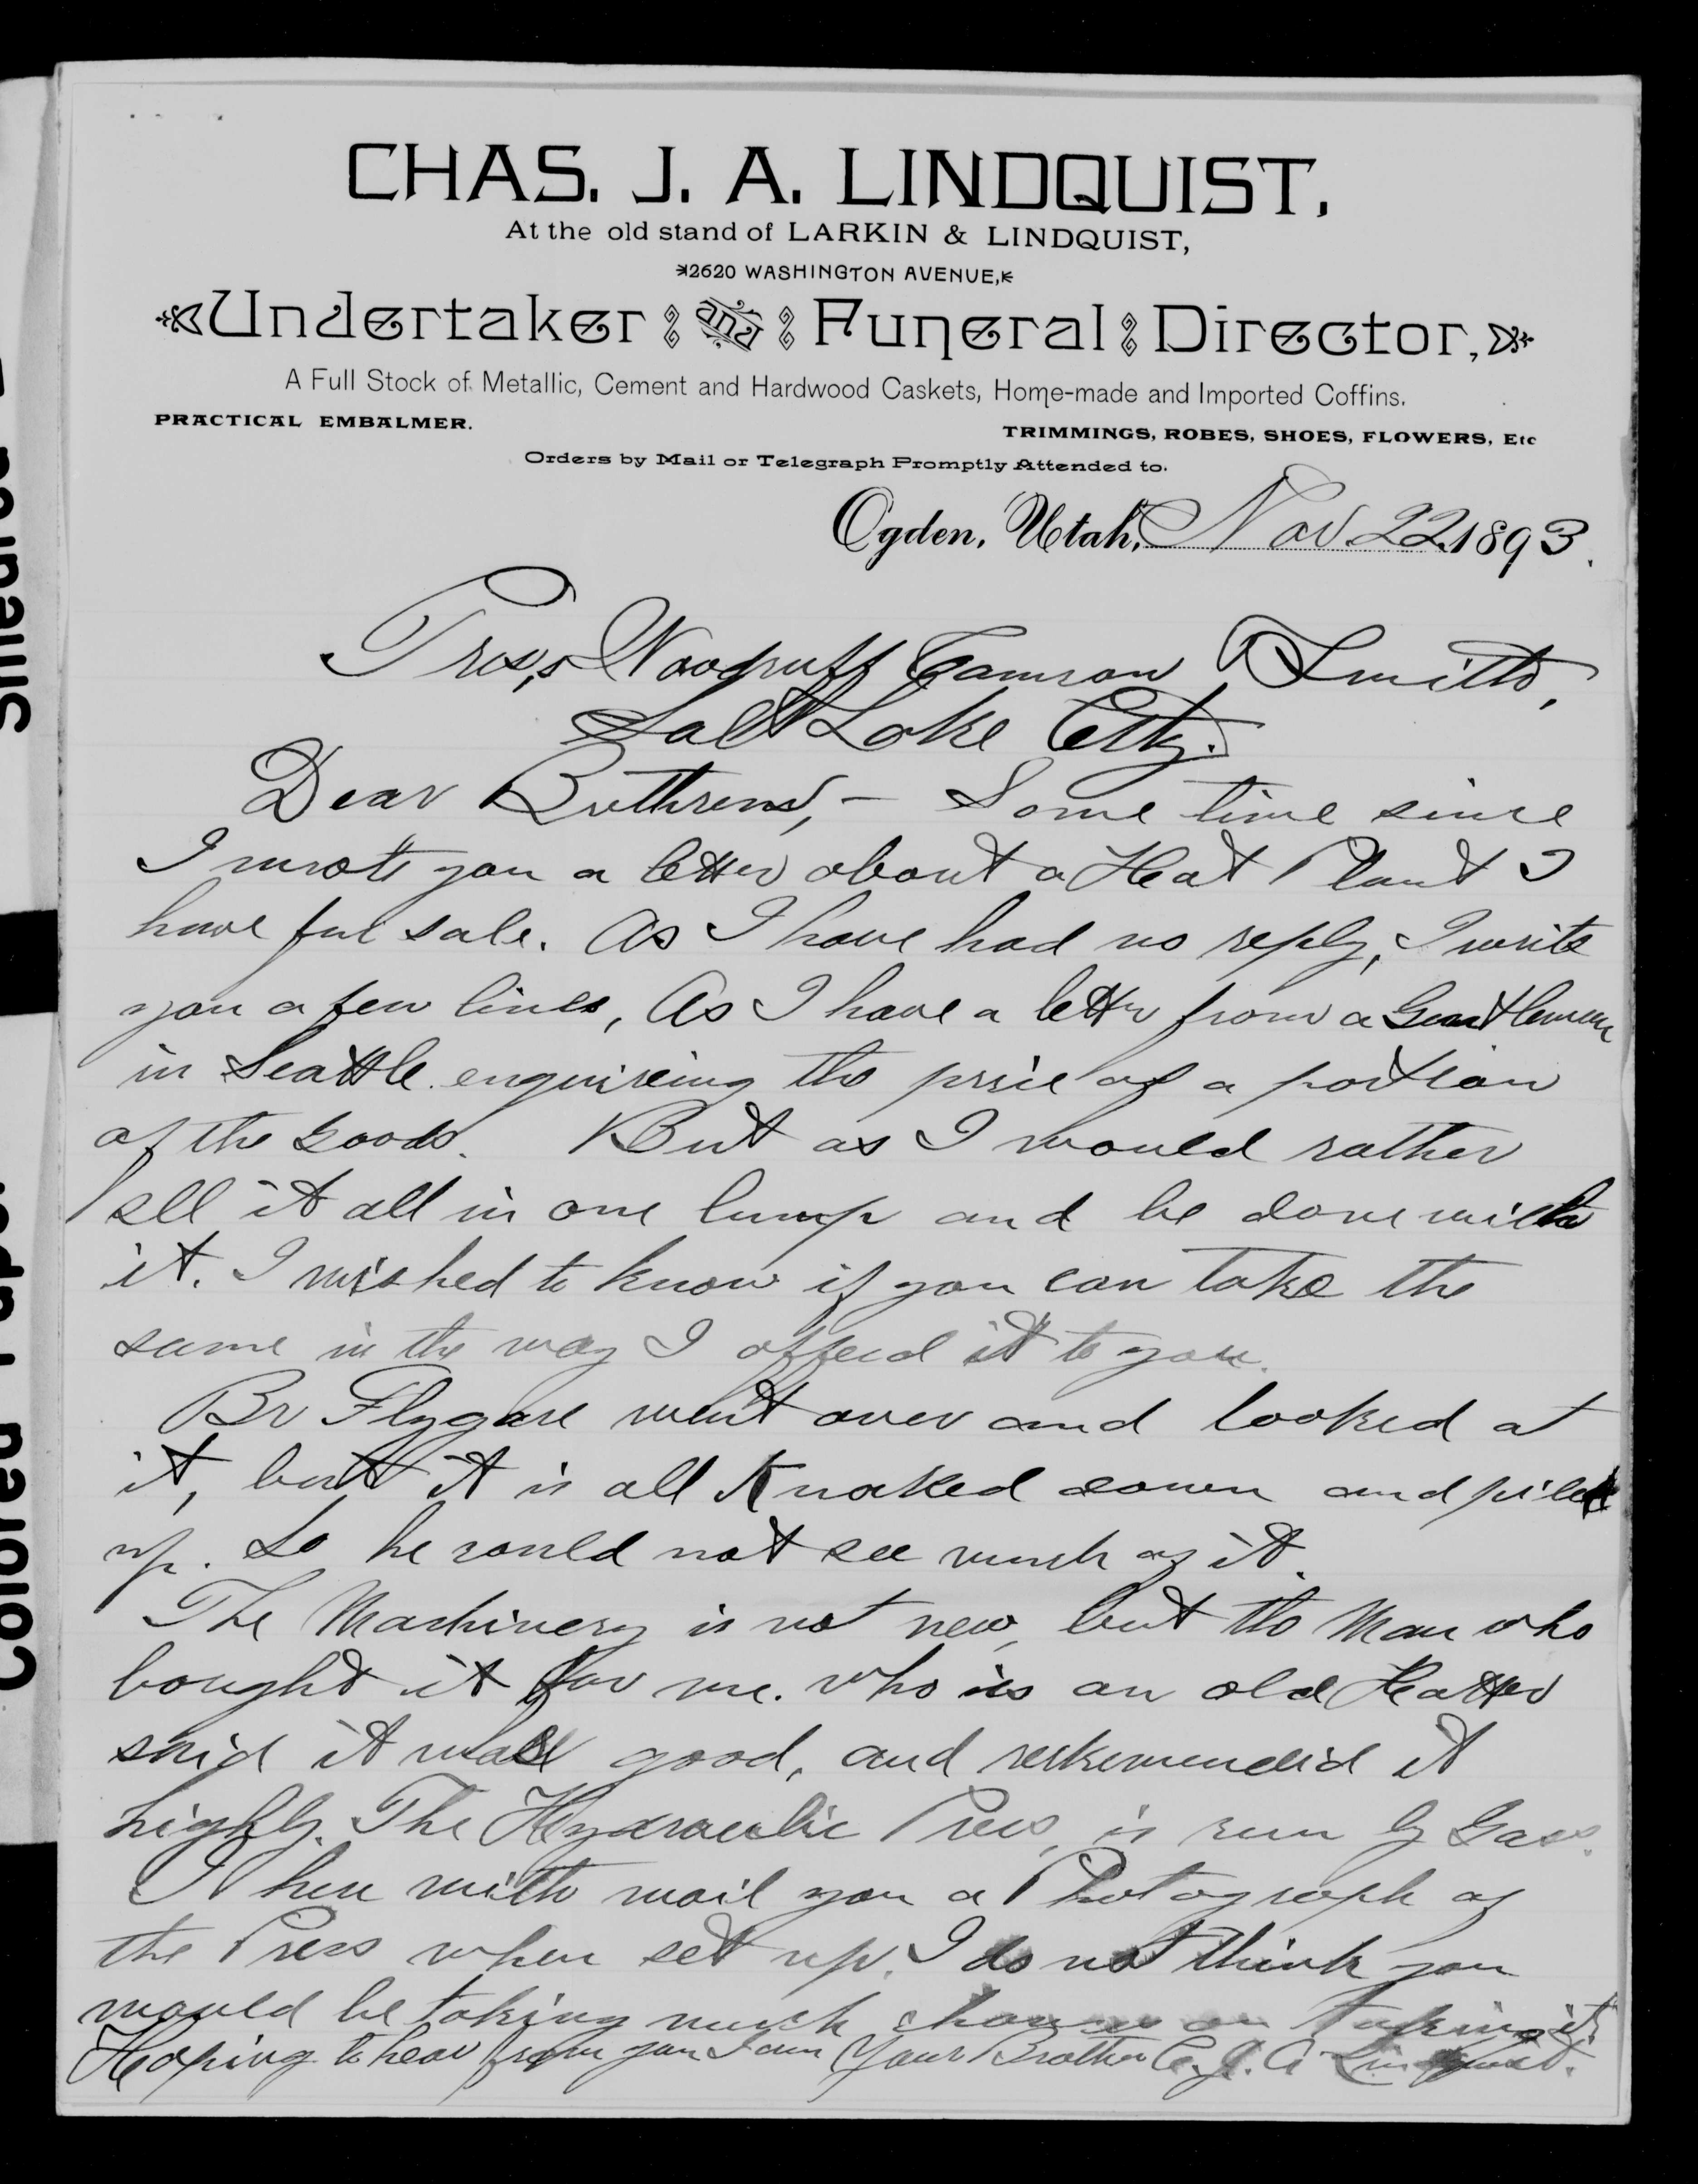 CHAS. J. A. LINDQUIST,
At the old stand of LARKIN & LINDQUIST,
2620 WASHINGTON AVENUE,
Undertaker and Funeral Director,
A Full Stock of Metallic, Cement and Hardwood Caskets, Home-made and Imported Coffins.
PRACTICAL EMBALMER.
TRIMMINGS, ROBES, SHOES, FLOWERS, Etc
Orders by Mail or Telegraph Promptly Attended to.
Ogden, Utah, Nov. 22 1893.
Pres,s Woodruff Cannon & Smith,
Salt Lake City.
Dear Brethren, – Some time since
I wrote you a letter about a Hat Plant I
have for sale. As I have had no reply, I write
you a few lines, As I have a letter from a Gentleman
in Seattle enquireing the price of a portion
of the goods. But as I would rather
sell it all in one lump and be done with
it. I wished to know if you can take the
same in the way I offerd it to you.
Br Flygare went over and looked at
it, but it is all Knoked down and piled
up. So he could not see much of it.
The Machinery is not new, but the Man who
bought it for me. who is an old Hatter
said it was good, and reskemendid it
highly. The Hydraulic Press, is run by Gass.
I here with mail you a Photograph of
the Press when set up. I do not think you
would be taking much chances on taking it.
Hoping to hear from you I am Your Brother C. J. A. Lindquist.
Colored Paper